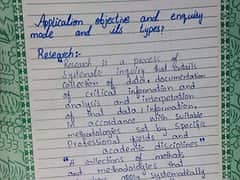 Application objectives and enquiry
mode and its types?
Research:-
"Research is a process of
systematic inquiry that entails
collection of data, documentation
of critical information and
analysis and interpretation
of that data/information,
in accordance with suitable
methodologies set by specific
Professional fields and
academic disciplines"
"A collections of methods
and methodologies that
apply systematically